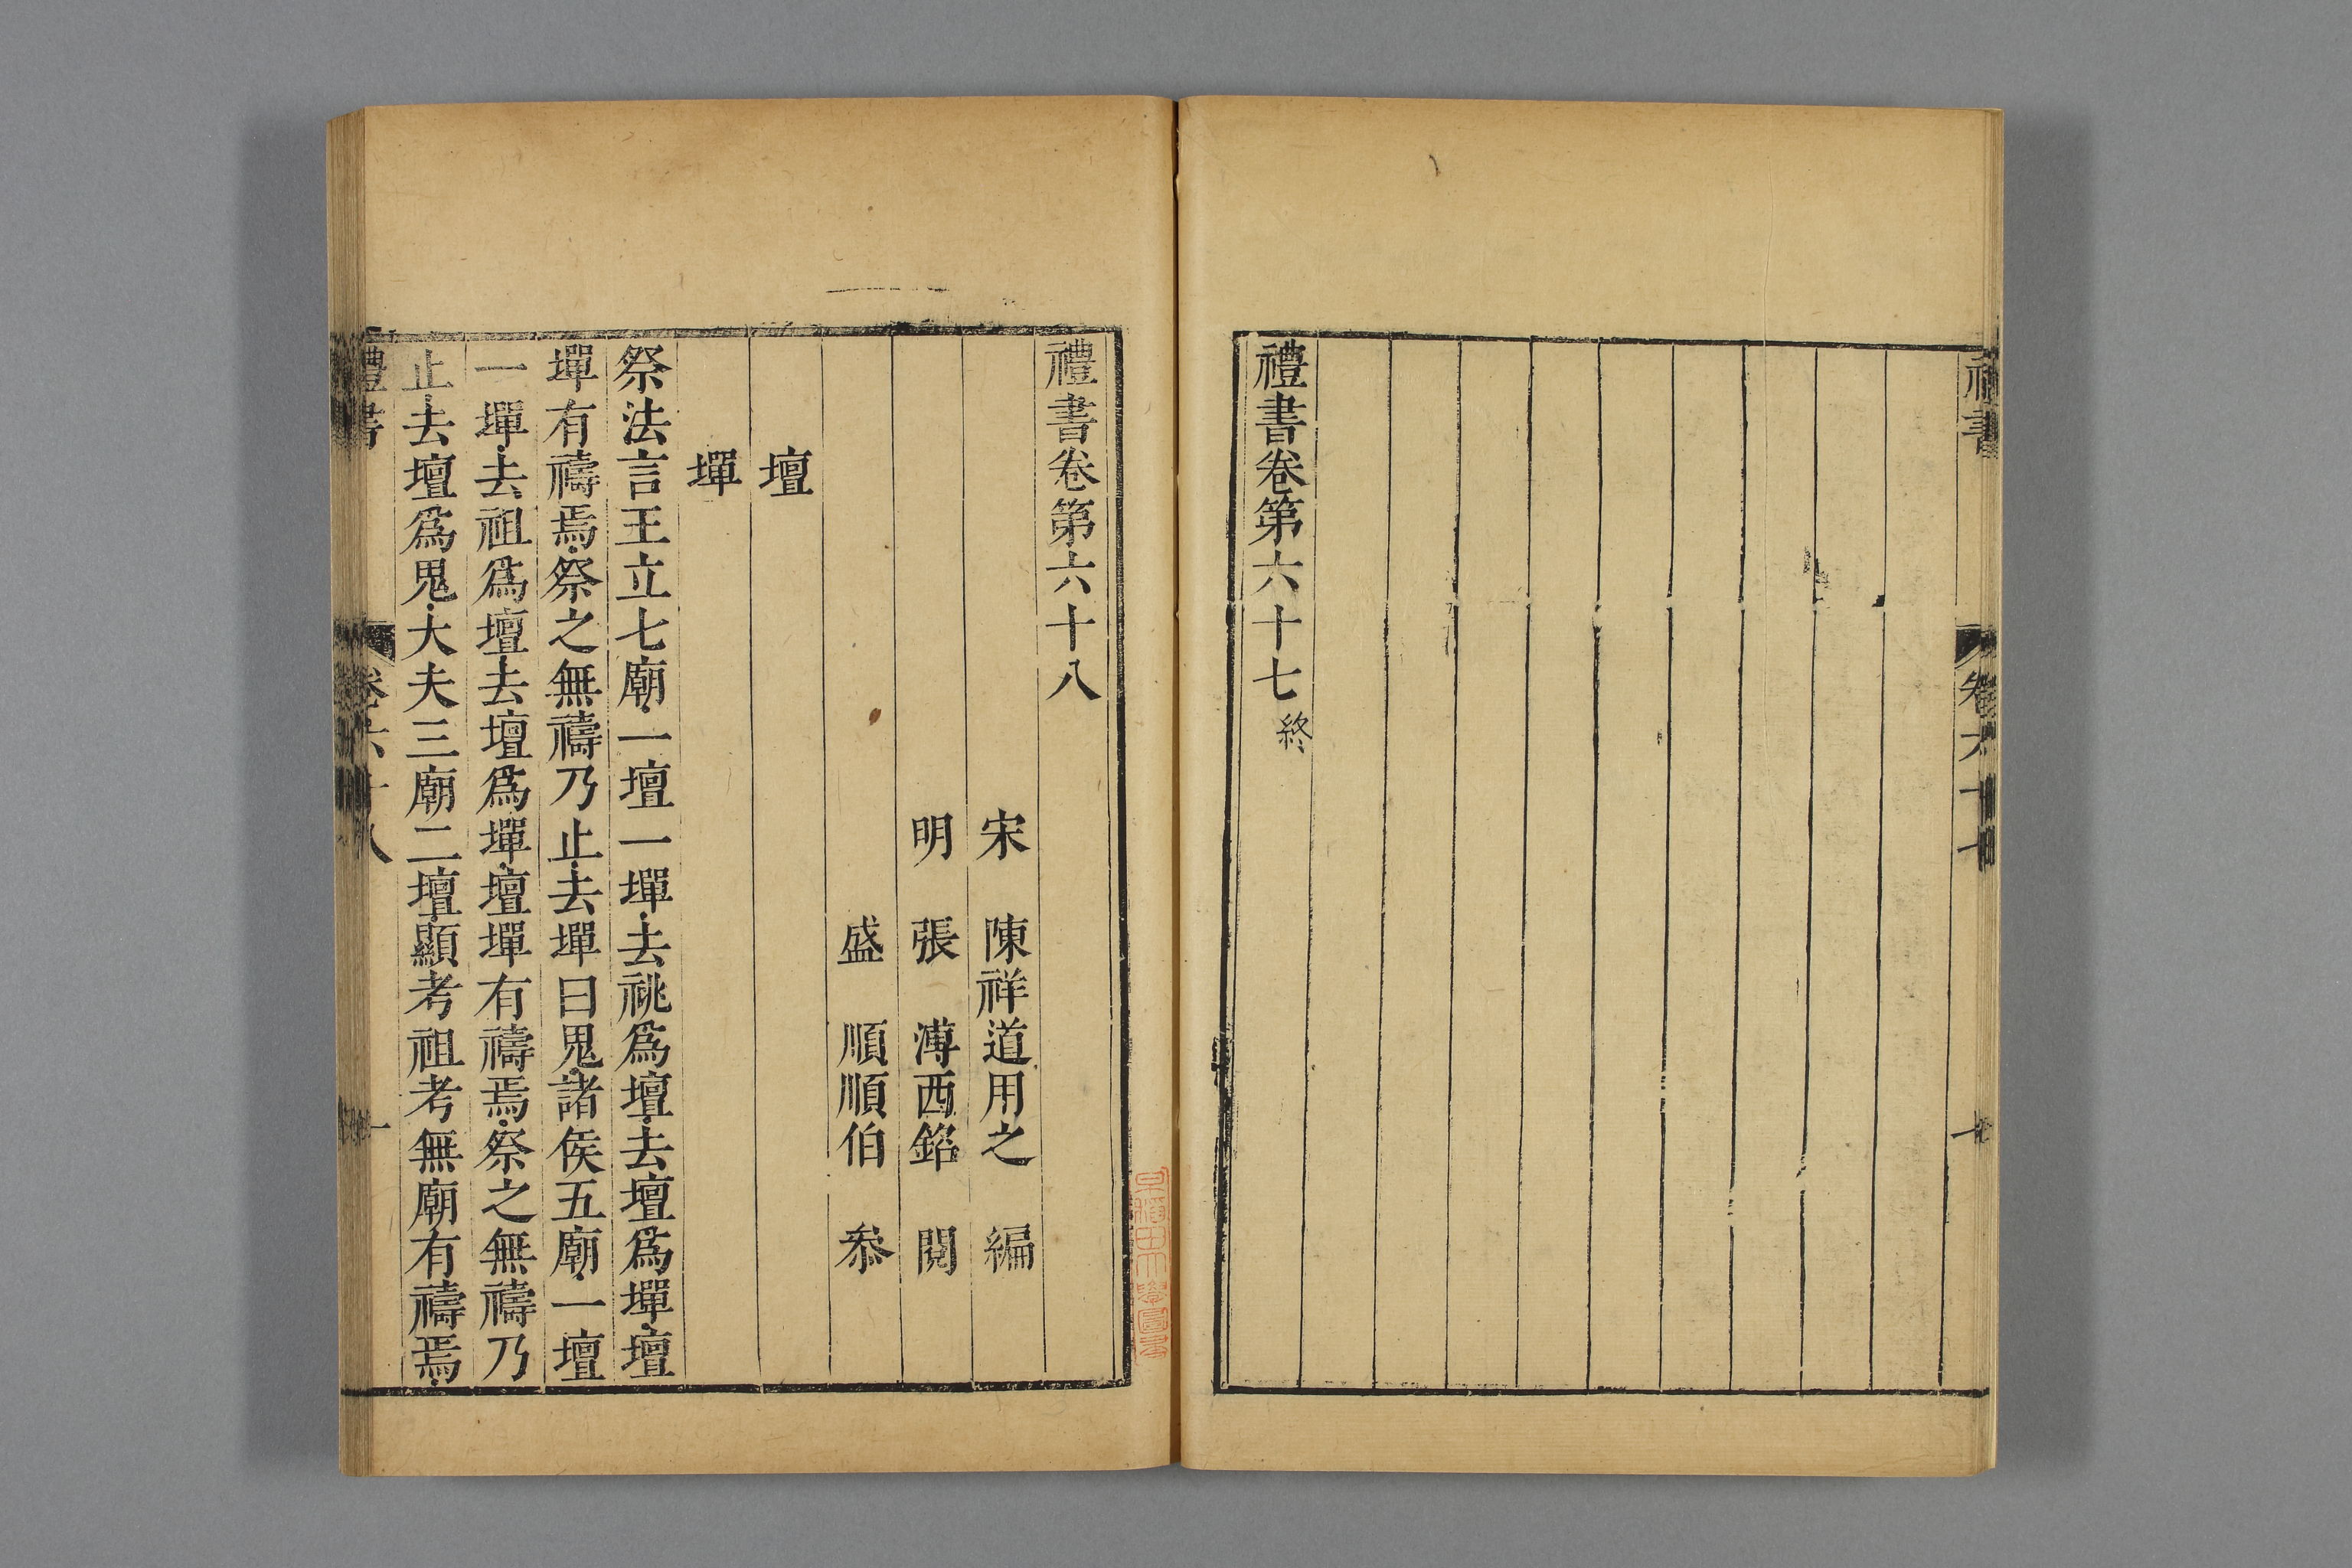 禮書卷第六十七終
禮書卷第六十八
宋 陳祥道用之 編
明 張 溥西銘 閱
盛 順順伯 叅
壇
墠
祭法言王立七廟一壇一墠去祧爲壇去壇爲墠壇
墠有禱焉祭之無禱乃止去墠曰鬼諸侯五廟一壇
一墠去祖爲壇去壇爲墠壇墠有禱焉祭之無禱乃
止去壇爲鬼大夫三廟二壇顯考祖考無廟有禱焉
禮書 卷六十八 一